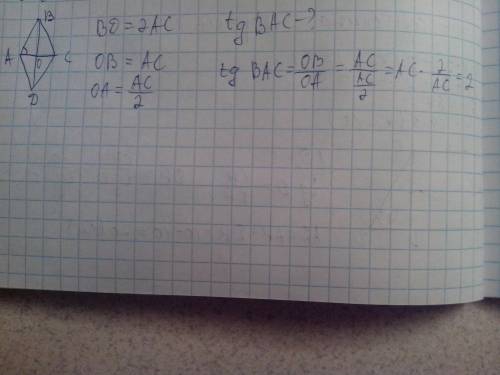 B
A O C
D
BD = 2AC
OB = AC
OA = AC/2
tg BAC - ?
tg BAC = OB/OA = AC/(AC/2) = AC · 2/AC = 2